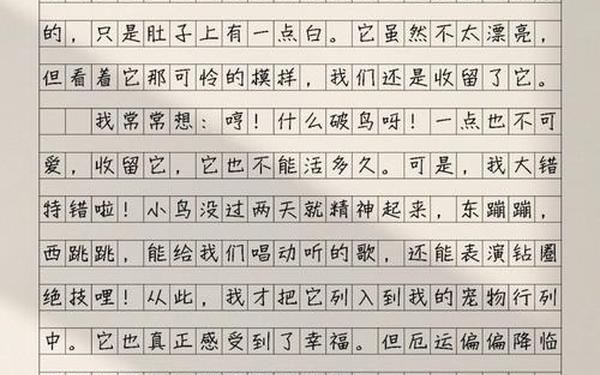 的，只是肚子上有一点白。它虽然不太漂亮，
但看着它那可怜的摸样，我们还是收留了它。
我常常想：哼！什么破鸟呀！一点也不可
爱，收留它，它也不能活多久。可是，我大错
特错啦！小鸟没过两天就精神起来，东蹦蹦，
西跳跳，能给我们唱动听的歌，还能表演钻圈
绝技哩！从此，我才把它列入到我的宠物行列
中。它也真正感受到了幸福。但厄运偏偏降临